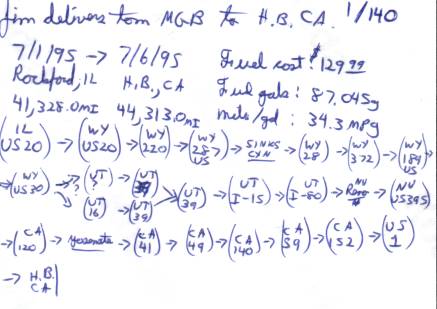 Jim delivers tom MGB to H.B. CA. 1/140
7/1/95 → 7/6/95 Fuel cost: $129.99
Rockford, IL H.B., CA Fuel gals: 87.045g
41,328.0MI 44,313.0MI mile/gal: 34.3 mpg
(IL US20) → (WY US20) → (WY 220) → (WY 287 US) → SINKS CYN → (WY 28) → (WY 372) → (WY 189 US)
→ (WY US30) → (UT ?) → (UT 39) → (UT 39) → (UT I-15) → (UT I-80) → (NV Reno) → (NV US395)
? (UT 16) → (UT 39)
→ (CA 120) → Yosemite → (CA 41) → (CA 49) → (CA 140) → (CA 59) → (CA 152) → (US 1)
→ H.B. CA